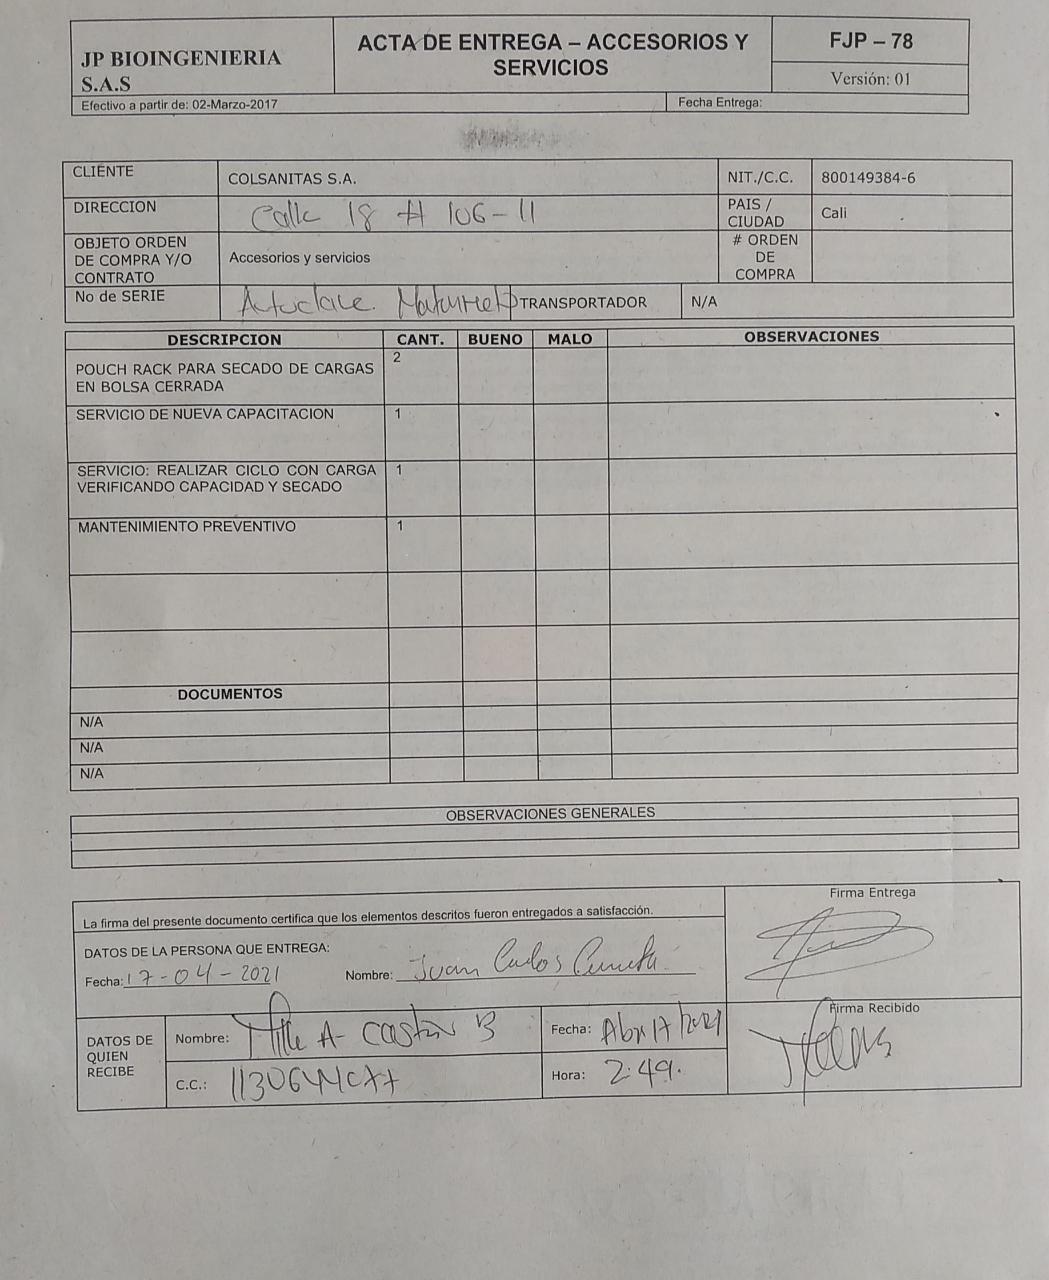 JP BIOINGENIERIA
S.A.S
ACTA DE ENTREGA – ACCESORIOS Y
SERVICIOS
FJP – 78
Versión: 01
Efectivo a partir de: 02-Marzo-2017
Fecha Entrega:
CLIENTE
COLSANITAS S.A.
NIT./C.C.
800149384-6
DIRECCION
Calle 18 # 106-11
PAIS /
CIUDAD
Cali
OBJETO ORDEN
DE COMPRA Y/O
CONTRATO
Accesorios y servicios
# ORDEN
DE
COMPRA
No de SERIE
Autoclave
TRANSPORTADOR
N/A
DESCRIPCION CANT. BUENO MALO OBSERVACIONES
POUCH RACK PARA SECADO DE CARGAS
EN BOLSA CERRADA
2
SERVICIO DE NUEVA CAPACITACION
1
SERVICIO: REALIZAR CICLO CON CARGA
VERIFICANDO CAPACIDAD Y SECADO
1
MANTENIMIENTO PREVENTIVO
1
DOCUMENTOS
N/A
N/A
N/A
OBSERVACIONES GENERALES
La firma del presente documento certifica que los elementos descritos fueron entregados a satisfacción.
Firma Entrega
DATOS DE LA PERSONA QUE ENTREGA:
Fecha: 17-04-2021 Nombre: Juan Carlos
DATOS DE
QUIEN
RECIBE
Nombre: A-
Fecha: Abr 17/2021
Firma Recibido
C.C.:
Hora: 2:49.